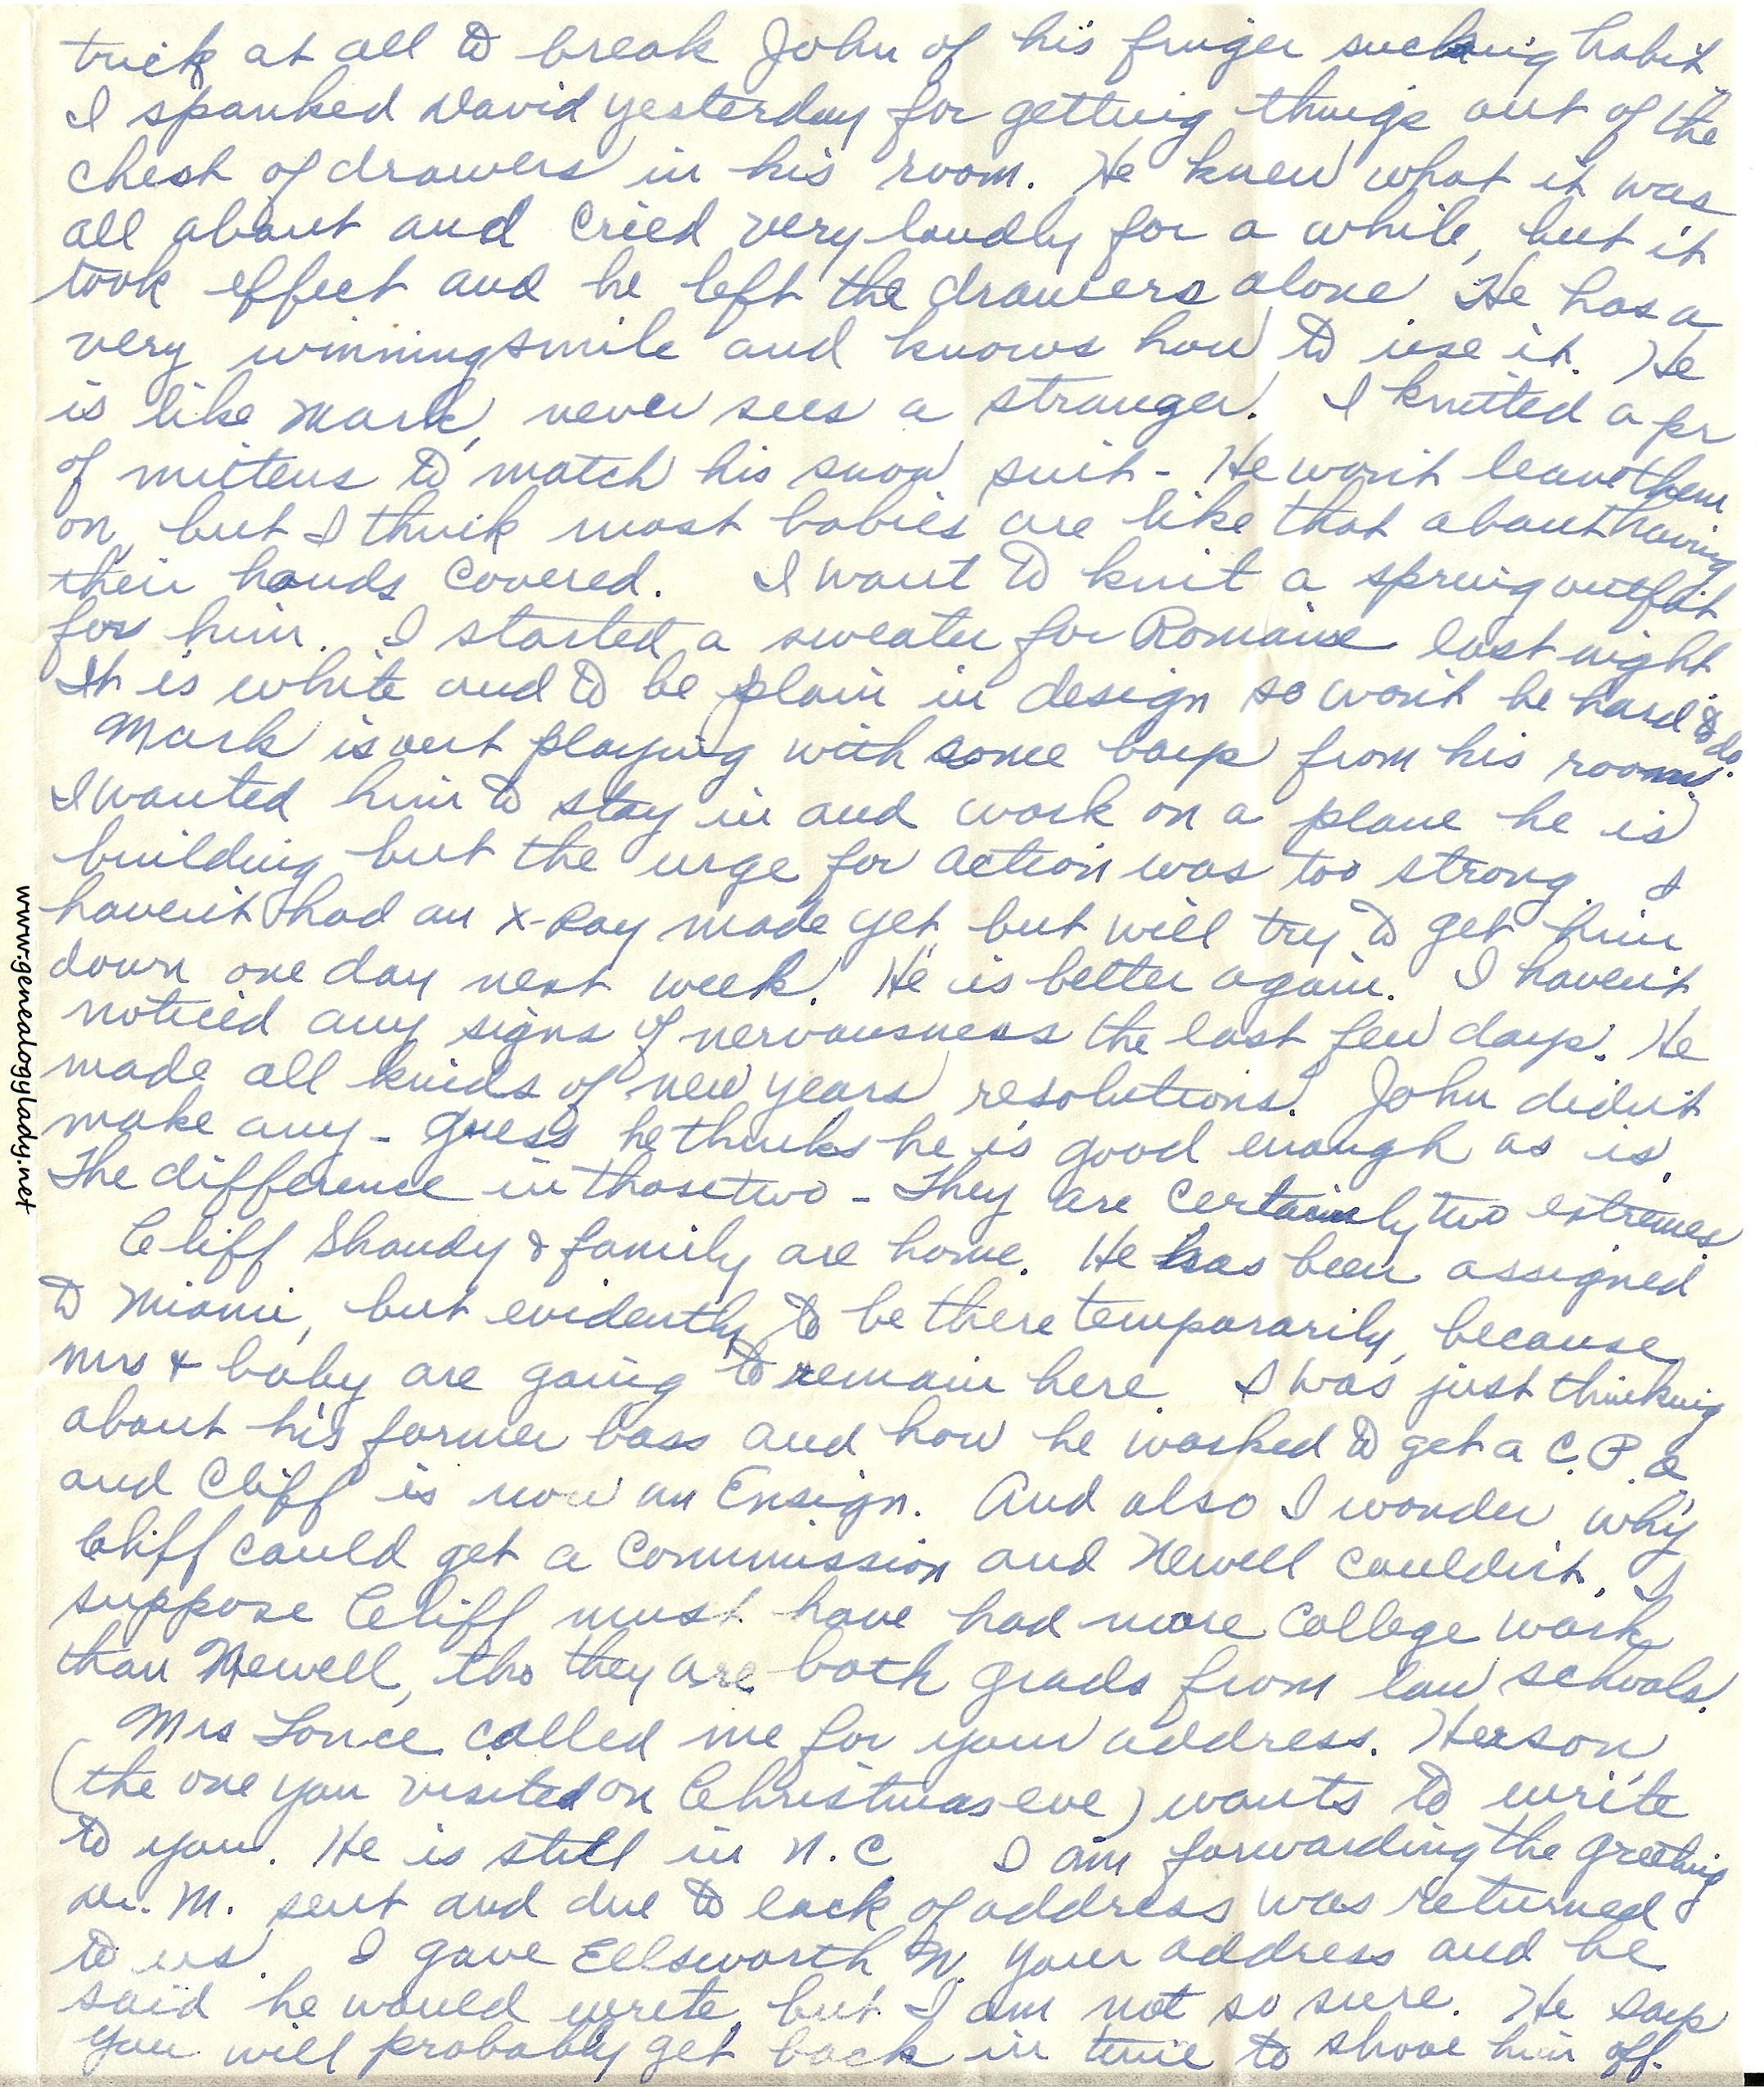 trick at all to break John of his finger sucking habit
I spanked David yesterday for getting things out of the
chest of drawers in his room. He knew what it was
all about and cried very loudly for a while, but it
took effect and he left the drawers alone. He has a
very winning smile and knows how to use it. He
is like Mark, never sees a stranger. I knitted a pr
of mittens to match his snow suit - He won't leave them
on, but I think most babies are like that about having
their hands covered. I want to knit a spring outfit
for him. I started a sweater for Romaine last night
It is white and to be plain in design so won't be hard to do.
Mark is out playing with some boys from his room.
I wanted him to stay in and work on a plane he is
building but the urge for action was too strong. I
haven't had an X-Ray made yet, but will try to get him
down one day next week. He is better again. I haven't
noticed any signs of nervousness the last few days. He
made all kinds of new years resolutions. John didn't
make any - guess he thinks he is good enough as is.
The difference in those two - They are certainly two extremes
Cliff Shandy & family are home. He has been assigned
to Miami, but evidently to be there temporarily, because
Mrs & baby are going to remain here. I was just thinking
about his former boss and how he worked to get a C.P.O
and Cliff is now an Ensign. And also I wonder why
Cliff could get a commission and Newell couldn't. I
suppose Cliff must have had more college work
than Newell, tho they are both grads from law schools.
Mrs Lonce called me for your address. Her son,
(the one you visited on Christmas eve) wants to write
to you. He is still in N.C I am forwarding the greeting
M. sent and due to lack of address was returned
to us. I gave Ellsworth N. your address and he
said he would write, but I am not so sure. He says
you will probably get back in time to shove him off.
www.genealogylady.net